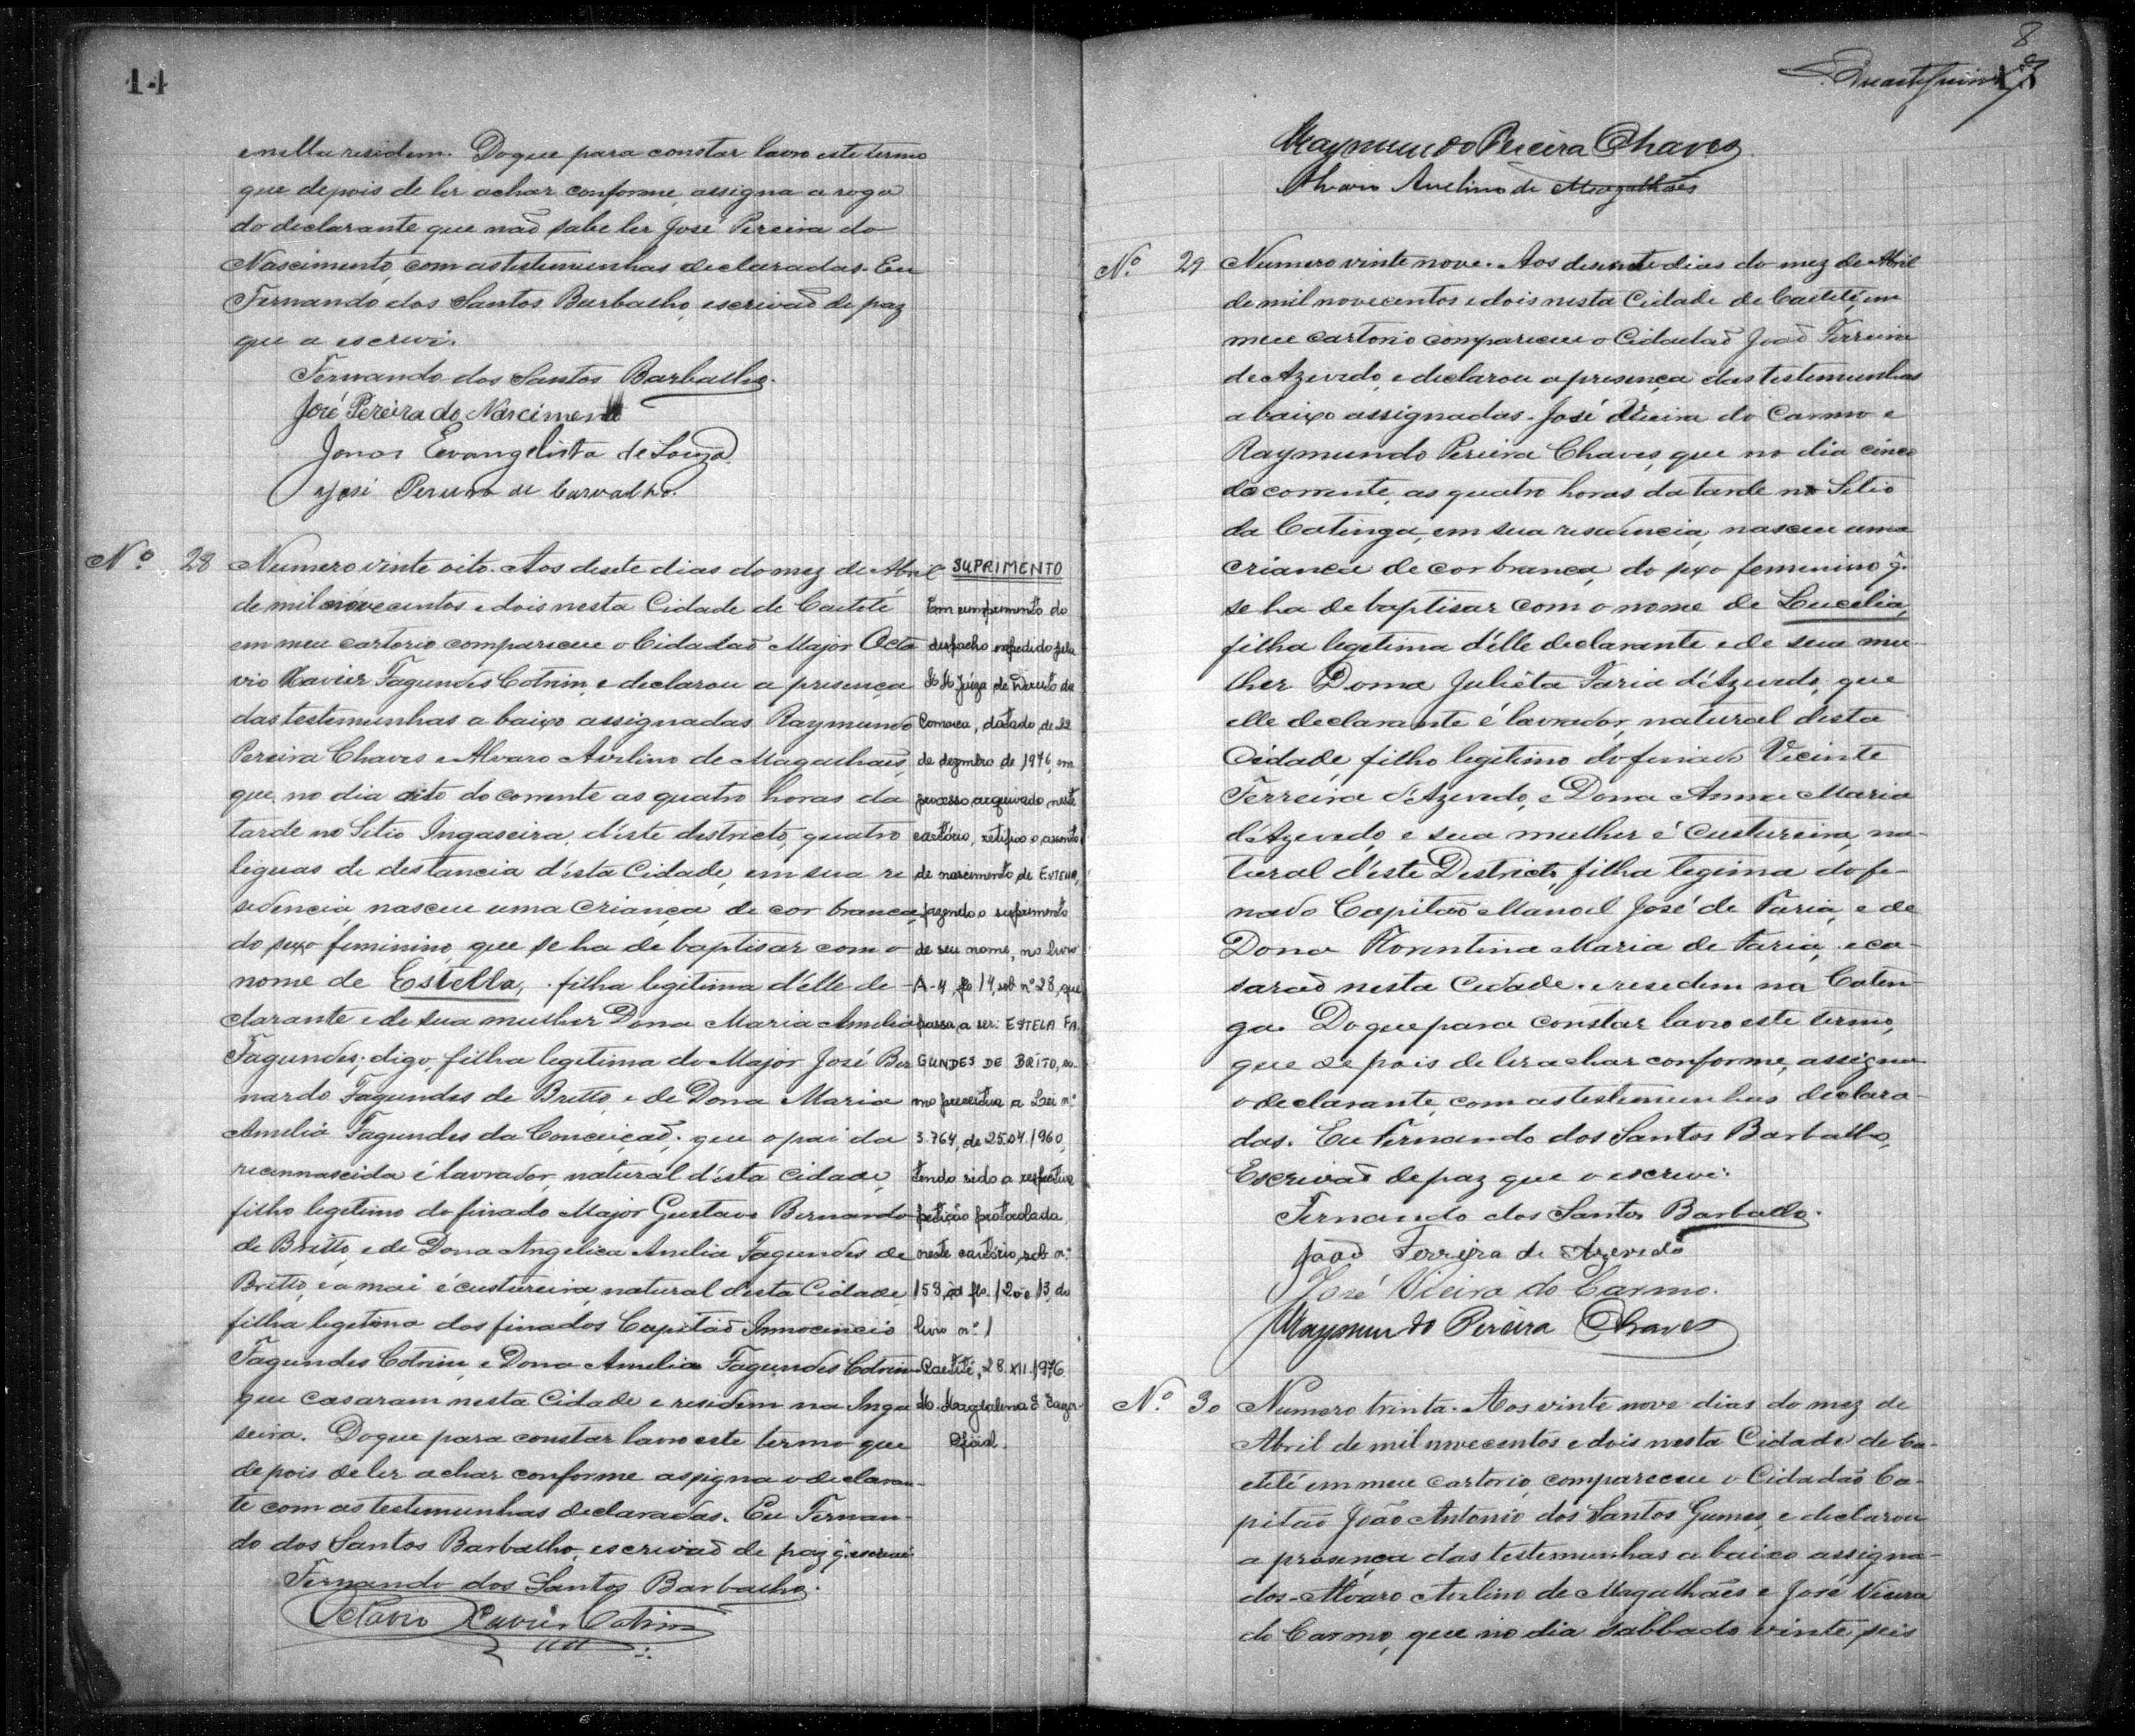 14
e nella residem. Do que para constar lavro este termo
que depois de ler achar conforme, assigna a rogo
do declarante que naõ sabe ler José Pereira do
Nascimento, com as testemunhas declaradas. Eu
Fernando dos Santos Barbalho, escrivaõ de paz
que a escrevi.
Fernando dos Santos Barbalho.
José Pereira do Nascimento
Jonas Evangelista de Souza.
José Pereira de Carvalho.
Nº 28 Numero vinte oito. Aos desete dias do mez de Abril
de mil novecentos e dois nesta Cidade de Caeteté
em meu cartorio compareceu o Cidadaõ Major Octa
vio Xavier Fagundes Cotrim, e declarou a presença
das testemunhas a baixo assignadas Raymundo
Pereira Chaves e Alvaro Avelino de Magalhães,
que no dia oito do corrente as quatro horas da
tarde no Sitio Ingaseira, d'este districto, quatro
leguas de destancia d'esta Cidade, em sua re
sidencia, nasceu uma criança de cor branca,
do sexo feminino, que se ha de baptisar com o
nome de Estella, filha legitima d'elle de
clarante e de sua mulher Dona Maria Amelia
Fagundes; digo, filha legitima do Major José Ber
nardo Fagundes de Britto, e de Dona Maria
Amelia Fagundes da Conceiçaõ; que o pai da
recemnascida é lavrador, natural d'esta Cidade,
filho legitimo do finado Major Gustavo Bernardo
de Britto, e de Dona Angelica Amelia Fagundes de
Britto, e a mai é custureira, natural desta Cidade,
filha legitima dos finados Capitaõ Innocencio
Fagundes Cotrim, e Dona Amelia Fagundes Cotrim
que casaram nesta Cidade e residem na Inga
seira. Do que para constar lavro este termo que
depois de ler achar conforme assigna o declaran-
te com as testemunhas declaradas. Eu Fernan-
do dos Santos Barbalho, escrivaõ de paz q. escrevi
Fernando dos Santos Barbalho.
Octavio Xavier Cotrim
SUPRIMENTO
Em cumprimento do
despacho expedido pela
M M Juiza de Direito da
Comarca, datado de 22
de dezembro de 1976, em
processo arquivado neste
cartório, retifico o assento
de nascimento de ESTELLA,
fazendo o suprimento
de seu nome, no livro
A-4, fls 14, sob nº 28, que
passa a ser: ESTELA FA-
GUNDES DE BRITO, co-
mo preceitua a Lei nº
3.764, de 25.04.1960,
tendo sido a respectiva
petição protocolada,
neste cartório, sob nº
153, às fls. 12v e 13, do
livro nº 1
Caetité, 28.XII.1976
Oficial.
8
Raymundo Pereira Chaves
Alvaro Avelino de Magalhães
Nº 29 Numero vinte nove. Aos desesete dias do mez de Abril
de mil novecentos e dois nesta Cidade de Caeteté, em
meu cartorio compareceu o Cidadaõ Joaõ Ferreira
de Azevedo, e declarou a presença das testemunhas
a baixo assignadas. José Vieira do Carmo e
Raymundo Pereira Chaves, que no dia cinco
do corrente, as quatro horas da tarde no Sitio
da Catinga, em sua residencia, nasceu uma
criança de cor branca, do sexo femenino q.
se ha de baptisar com o nome de Lucilia,
filha legitima d'elle declarante e de sua mu-
lher Dona Juliêta Faria d'Azevedo, que
elle declarante é lavrador, natural desta
Cidade, filho legitimo do finado Vicente
Ferreira d'Azevedo, e Dona Anna Maria
d'Azevedo, e sua mulher é custureira, na-
tural d'este Districto, filha legima do fi-
nado Capitaõ Manoel José de Faria, e de
Dona Florentina Maria de Faria, e ca-
saraõ nesta Cidade. e residem na Catin-
ga. Do que para constar lavro este termo,
que depois de ler achar conforme, assigna
o declarante, com as testemunhas declara-
das. Eu Fernando dos Santos Barbalho,
Escrivaõ de paz que o escrevi.
Fernando dos Santos Barbalho.
Joaõ Ferreira de Azevedo
José Vieira do Carmo.
Raymundo Pereira Chaves
Nº 30 Numero trinta. Aos vinte nove dias do mez de
Abril de mil novecentos e dois nesta Cidade de Ca-
eteté em meu cartorio, compareceu o Cidadaõ Ca-
pitaõ João Antonio dos Santos Gumes, e declarou
a presença das testemunhas a baixo assigna-
dos. Alvaro Avelino de Magalhães e José Vieira
do Carmo, que no dia sabbado vinte seis